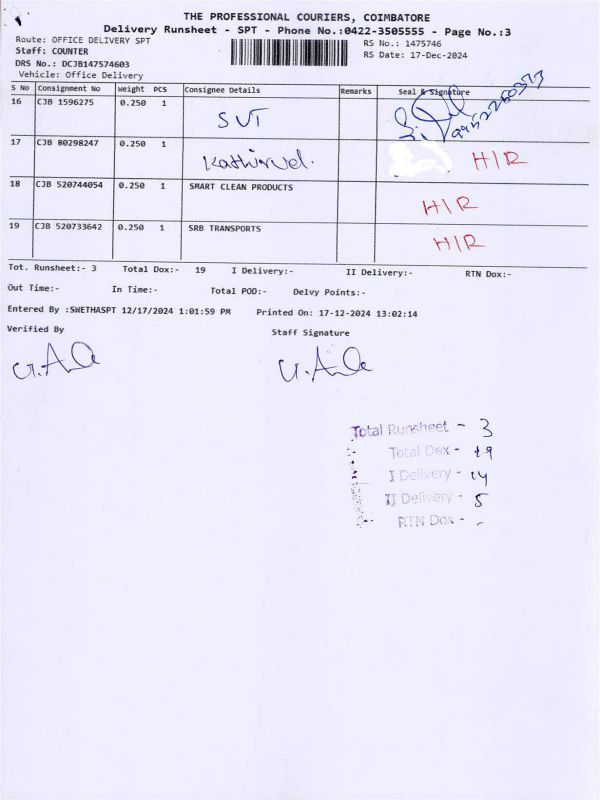 THE PROFESSIONAL COURIERS, COIMBATORE
Delivery Runsheet - SPT - Phone No.:0422-3505555 - Page No.:3
Route: OFFICE DELIVERY SPT
RS No.: 1475746
Staff: COUNTER
RS Date: 17-Dec-2024
DRS No.: DCJB147574603
Vehicle: Office Delivery
S No Consignment No Weight PCS Consignee Details Remarks Seal & Signature
16 CJB 1596275 0.250 1 SVT
17 CJB 80298247 0.250 1 Kathirvel. H/R
18 CJB 520744054 0.250 1 SMART CLEAN PRODUCTS H/R
19 CJB 520733642 0.250 1 SRB TRANSPORTS H/R
Tot. Runsheet:- 3 Total Dox:- 19 I Delivery:- II Delivery:- RTN Dox:-
Out Time:- In Time:- Total POD:- Delvy Points:-
Entered By :SWETHASPT 12/17/2024 1:01:59 PM Printed On: 17-12-2024 13:02:14
Verified By Staff Signature
Total Runsheet - 3
Total Dox - 19
I Delivery - 14
II Delivery - 5
RTN Dox - -